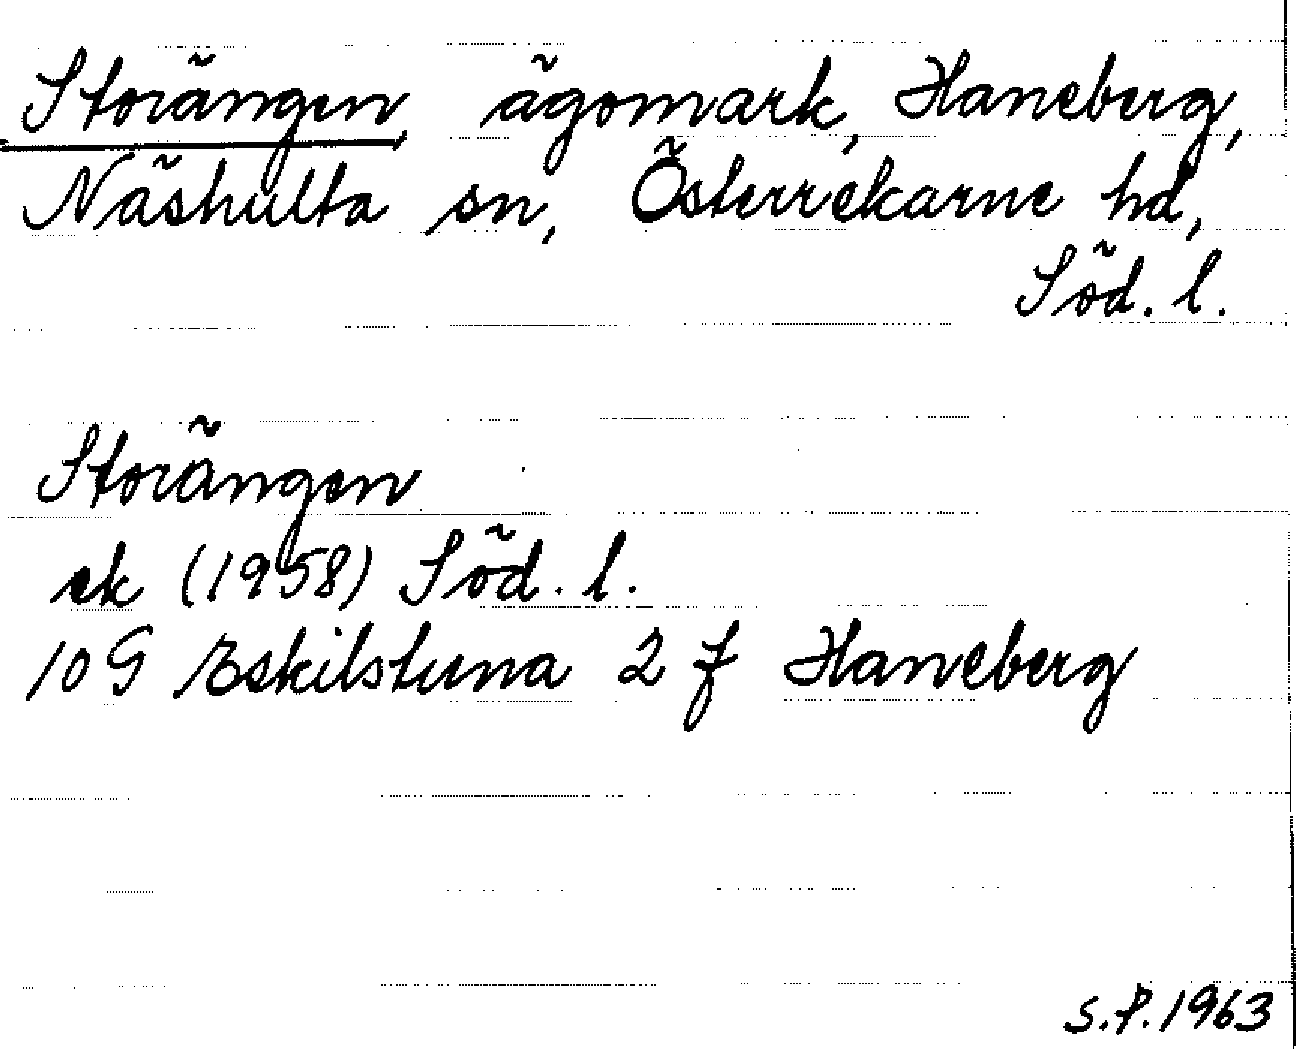 Storängen, ägomark, Haneberg,
Näshulta sn, Österrekarne hd,
Söd. l.
Storängen
ek (1958) Söd. l.
10 G Eskilstuna 2 f Haneberg
S.P. 1963